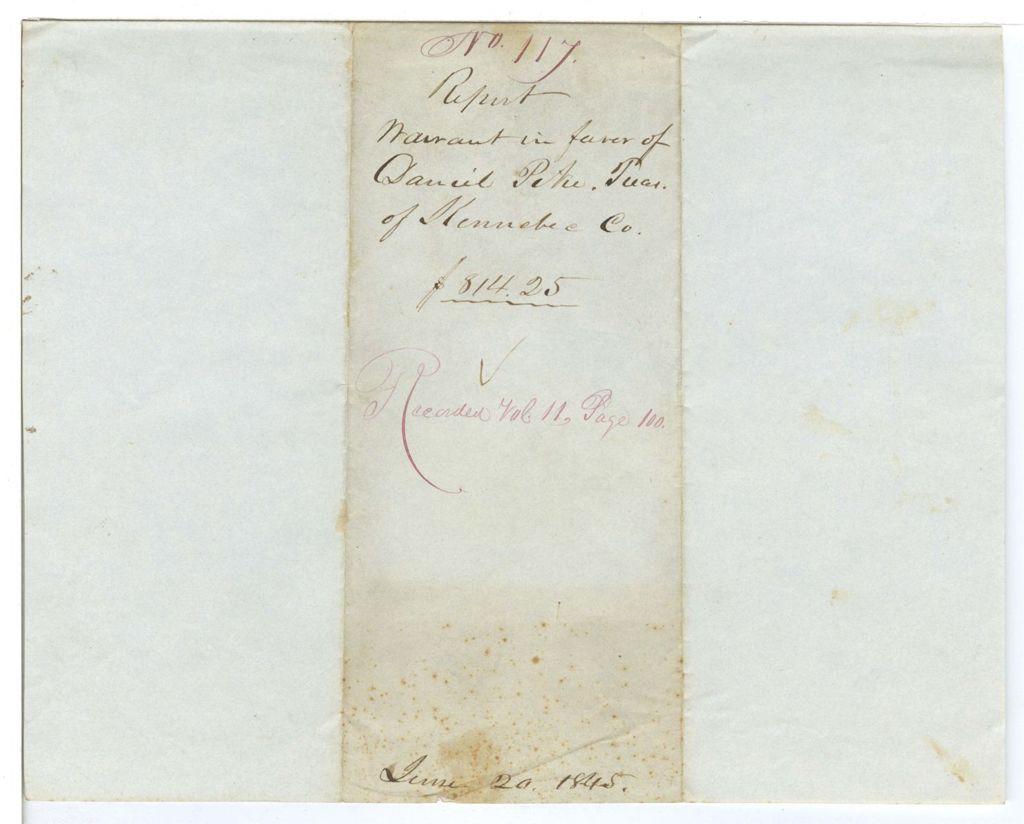 No. 117.
Report
Warrant in favor of
Daniel Pike. Treas.
of Kennebec Co.
$814.25
Recorded Vol. 11, Page 100.
June 20. 1845.